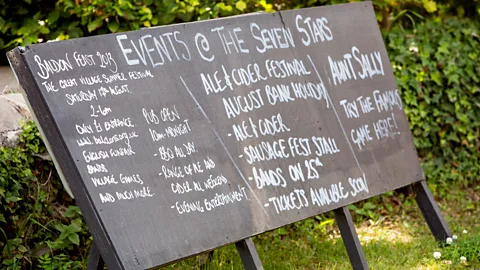 EVENTS @ THE SEVEN STARS
BALDON FEST 2013
THE GREAT VILLAGE SUMMER FESTIVAL
SATURDAY AUGUST.
2-6pm
ONLY £1 ENTRANCE
ENGLISH FUNFAIR
BANDS
VILLAGE GAMES
AND MUCH MORE
PUB OPEN
10am MIDNIGHT
- BBQ ALL DAY
- RANGE OF ALE AND
CIDER ALL WEEKEND
- EVENING ENTERTAINMENT
ALE & CIDER FESTIVAL
AUGUST BANK HOLIDAY
- ALE & CIDER
- SAUSAGE FEST STALL
- BANDS ON 25th
- TICKETS AVAILIBLE SOON
AUNT SALLY
TRY THE FAMOUS
GAME HERE!